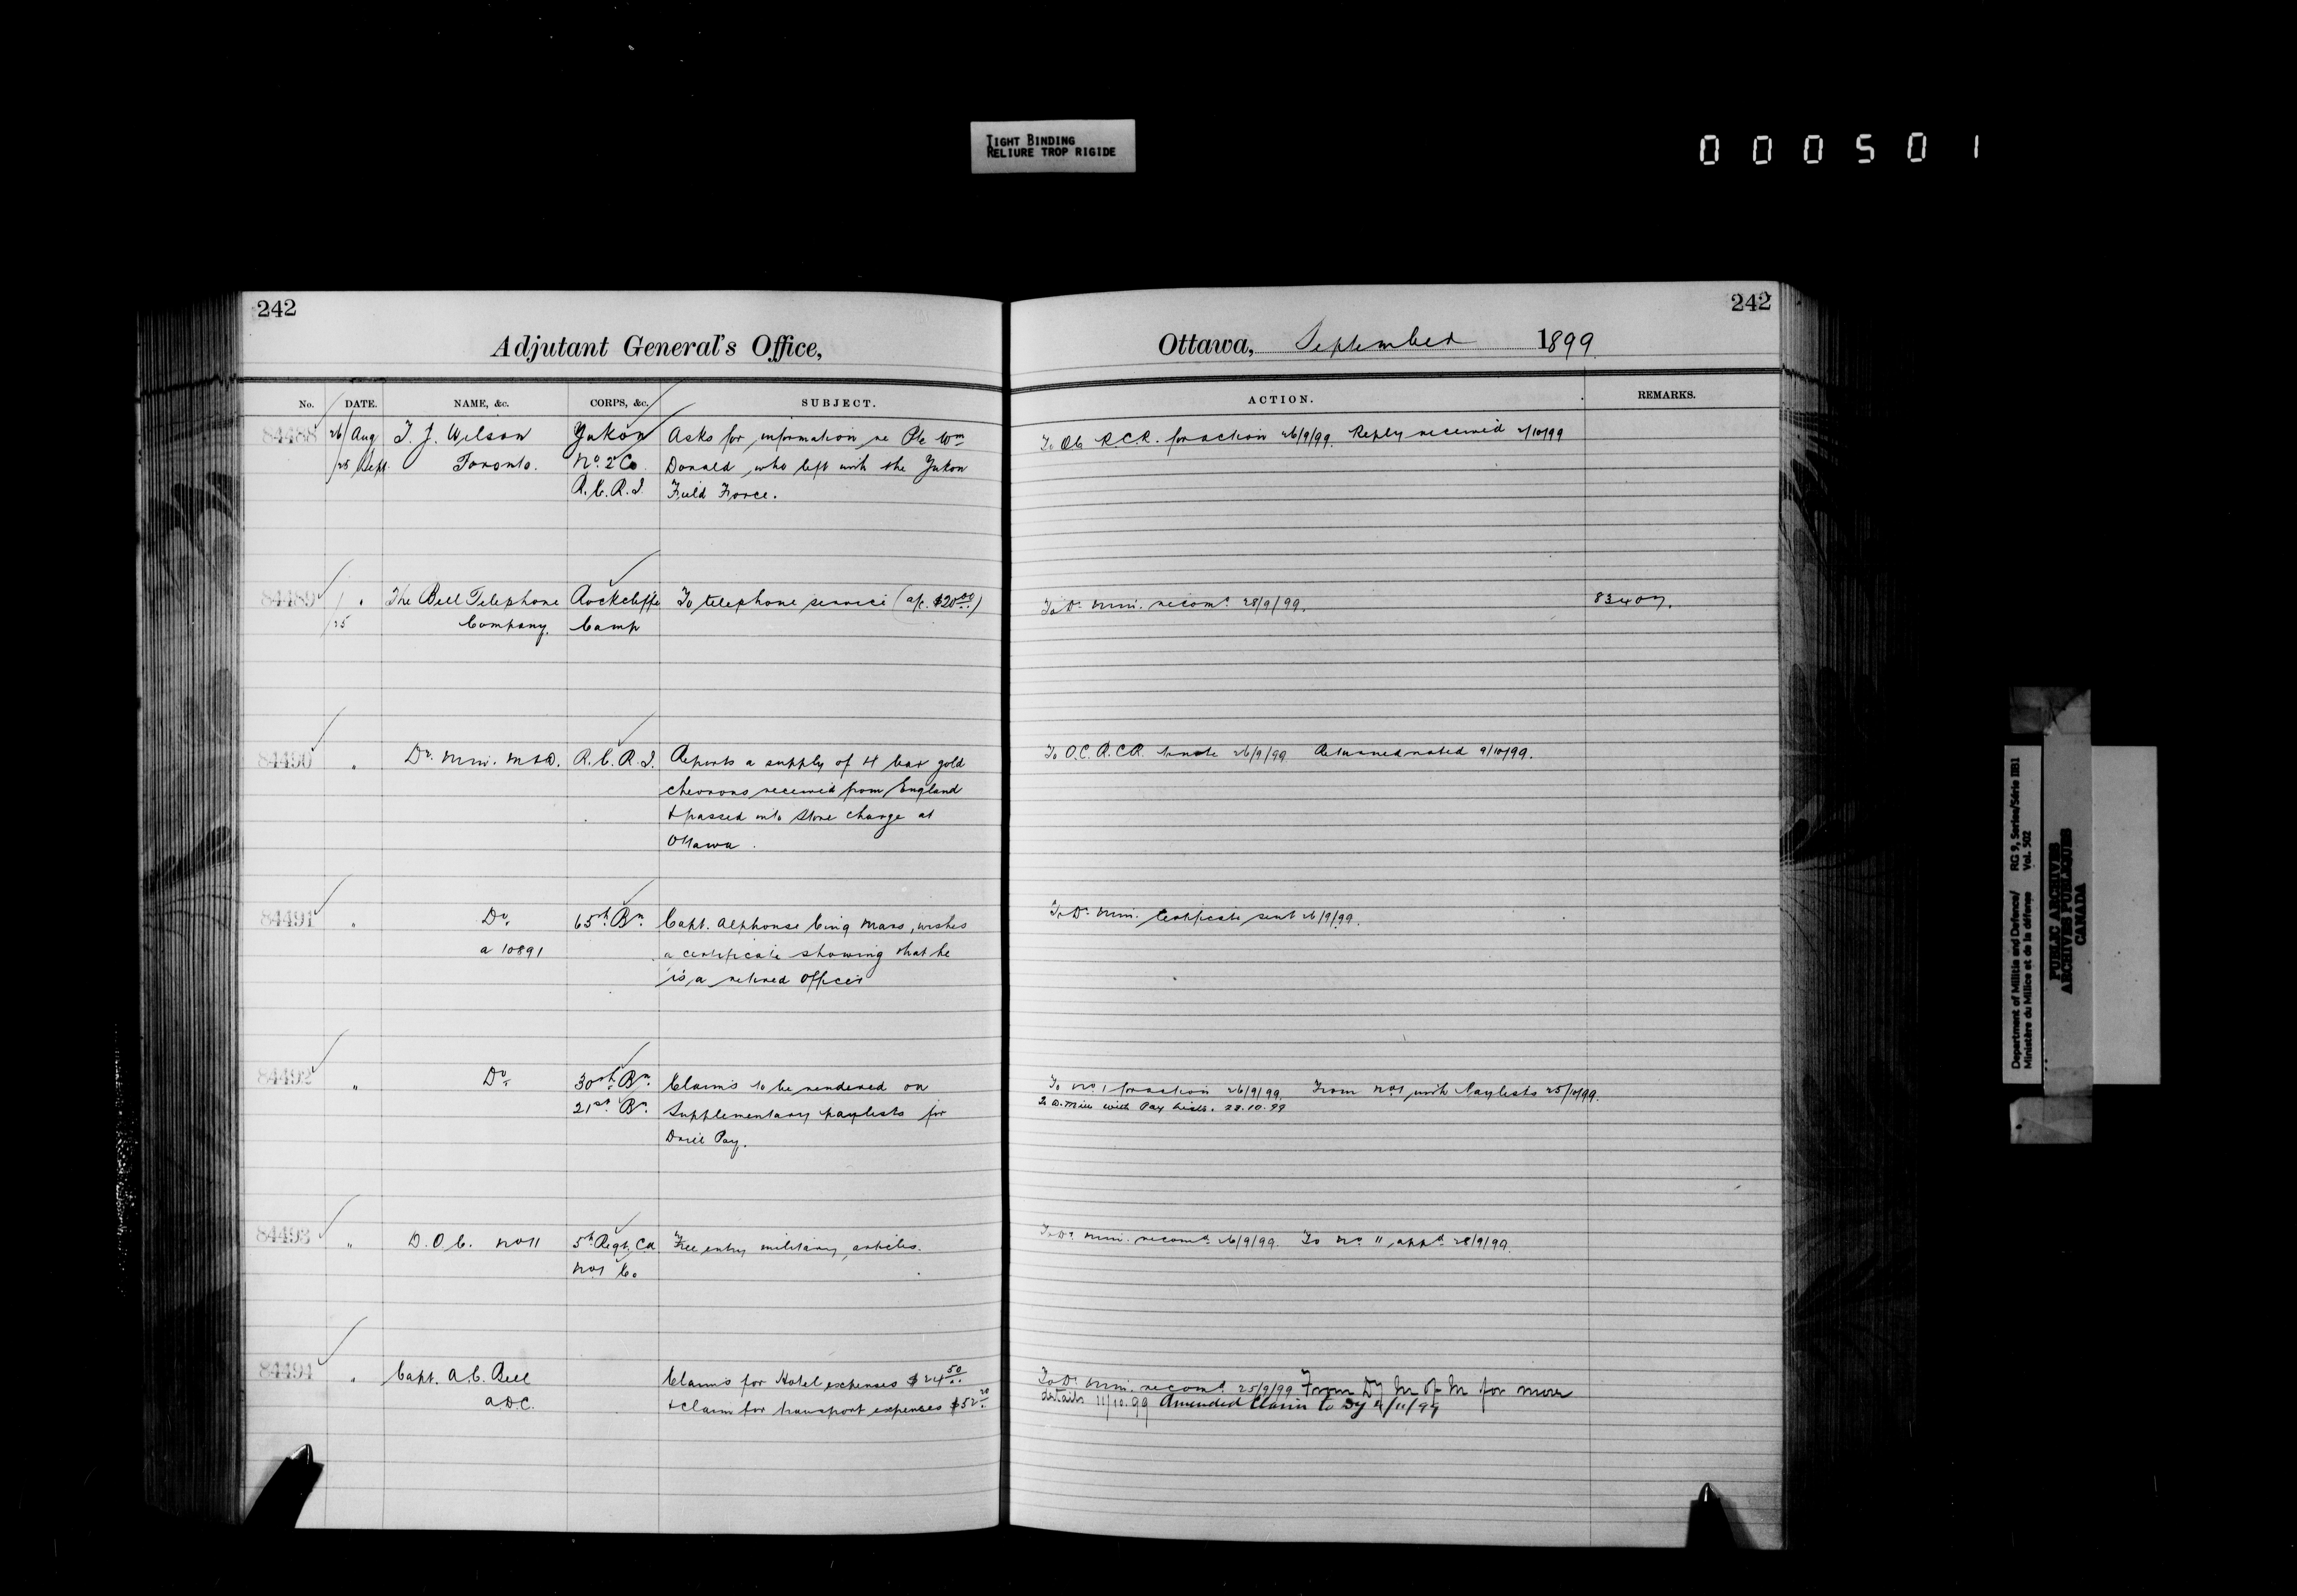 TIGHT BINDING
RELIURE TROP RIGIDE
000501
242
Adjutant General's Office,
No. DATE. NAME, &c. CORPS, &c. SUBJECT.
84488 26/Aug T. J. Wilson Yukon Asks for information re Pte Wm
/25 Sept. Toronto. No. 2 Co. Donald who left with the Yukon
R.C.R.I. Field Force.
84489 1 " The Bell Telephone Rockcliffe To telephone service (a/c. $20.00)
/25 Company. Camp
84490 " Dr. Min. M&D. R.C.R.I. Reports a supply of 4 bar gold
chevrons received from England
& passed into Store charge at
Ottawa.
84491 " Do. 65th Bn. Capt. Alphonse Cinq Mars, wishes
a 10891 a certificate showing that he
is a retired officer
84492 " Do. 30th Bn. Claims to be rendered on
21st Bn. Supplementary paylists for
Drill Pay.
84493 " D.O.C. No 11 5th Regt. C.A. Free entry military articles.
No 1 Co.
84494 " Capt. A.C. Bell Claims for Hotel expenses $24.50
A.D.C. & claim for transport expenses $52.20
242
Ottawa, September 1899
ACTION. REMARKS.
To OC R.C.R. for action 26/9/99. Reply received 2/10/99
To D. Min. recomd. 28/9/99. 83407.
To O.C. R.C.R. to note 26/9/99 Returned noted 9/10/99.
To D. Min. Certificate sent 26/9/99.
To No 1 for action 26/9/99. From No 1 with Paylists 25/10/99.
To D. Min with Pay Lists. 28.10.99
To D. Min. recomd. 26/9/99. To No. 11, appd. 28/9/99.
To D. Min. recomd. 25/9/99 From Dy M of M for more
details 11/10.99 Amended Claim to Dy 4/11/99
Department of Militia and Defence/ RG 9, Series/Série IIB1
Ministère du Milice et de la défense Vol. 502
PUBLIC ARCHIVES
ARCHIVES PUBLIQUES
CANADA